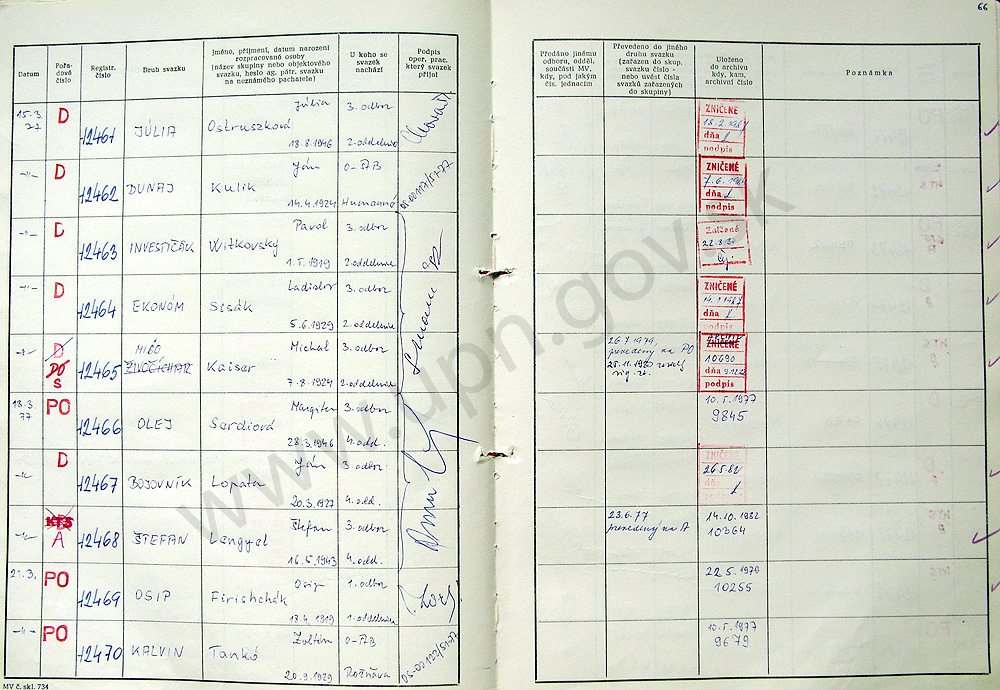 66
Datum
Pořa-
dové
číslo
Registr.
číslo
Druh svazku
Jméno, příjmení, datum narození
rozpracované osoby
(název skupiny nebo objektového
svazku, heslo ag. pátr. svazku
na neznámého pachatele)
U koho se
svazek
nachází
Podpis
oper. prac.
který svazek
přijal
Předáno jinému
odboru, odděl.
součásti MV,
kdy, pod jakým
čís. jednacím
Převedeno do jiného
druhu svazku
(zařazen do skup.
svazku číslo -
nebo uvést čísla
svazků zařazených
do skupiny)
Uloženo
do archivu
kdy, kam,
archivní číslo
Poznámka
15.3.
77
D
12461
JÚLIA
Júlia
Ostruszková
18.8.1946
3. odbor
2. oddelenie
ZNIČENÉ
dňa
podpis
-"-
D
12462
DUNAJ
Ján
Kulik
14.4.1924
O-ŠtB
Humenné
ZNIČENÉ
dňa
podpis
-"-
D
12463
INVESTIČÁK
Pavol
Witkovský
1.5.1919
3. odbor
2. oddelenie
Zničené
-"-
D
12464
EKONÓM
Ladislav
Sisák
5.6.1929
3. odbor
2. oddelenie
ZNIČENÉ
14.1.1987
dňa
podpis
-"-
D
PO
S
12465
MIŠO
ŽIVOČÍCHÁR
Michal
Kaiser
7.8.1924
3. odbor
2. oddelenie
26.7.1979,
prevedený na PO
25.11.1980
ZNIČENÉ
10690
dňa
podpis
18.3.
77
PO
12466
OLEJ
Margita
Serdiová
28.3.1946
3. odbor
4. odd.
10.5.1977
9845
-"-
D
12467
BOJOVNÍK
Ján
Lopata
20.3.1927
3. odbor
4. odd.
ZNIČENÉ
26.5.82
dňa
podpis
-"-
KTS
A
12468
ŠTEFAN
Štefan
Lengyel
16.5.1943
3. odbor
4. odd.
23.6.77
prevedený na A
14.10.1982
10364
21.3.
PO
12469
OSIP
Osip
Firishchák
18.4.1919
1. odbor
1. oddelenie
22.5.1979
10255
-"-
PO
12470
KALVIN
Zoltán
Tankó
20.9.1929
O-ŠtB
Rožňava
10.5.1977
9679
MV č. skl. 734
www.upn.gov.sk